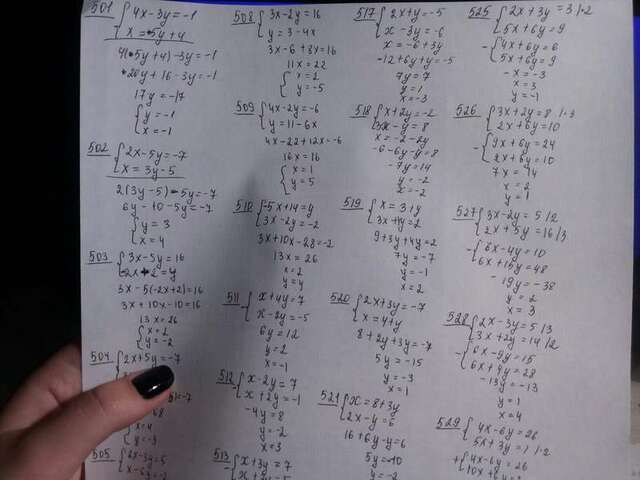 501 { 4x-3y=-1
x=5y+4
4(5y+4)-3y=-1
20y+16-3y=-1
17y=-17
{ y=-1
x=-1
502 { 2x-5y=-7
x=3y-5
2(3y-5)-5y=-7
6y-10-5y=-7
{ y=3
x=4
503 { 3x-5y=16
3x-5(-2x+2)=16
3x+10x-10=16
13x=26
{ x=2
y=-2
504 { 2x+5y=-7
x=4
y=-3
505
508 { 3x-2y=16
y=3-4x
3x-6+8x=16
11x=22
{ x=2
y=-5
509 { 4x-2y=-6
y=11-6x
4x-22+12x=-6
16x=16
{ x=1
y=5
510 { -5x+14=y
3x-2y=-2
3x+10x-28=-2
13x=26
x=2
y=4
511 { x+4y=7
x-2y=-5
6y=12
y=2
x=-1
512 { x-2y=7
x+2y=-1
-4y=8
y=-2
x=3
513 { x+3y=7
517 { 2x+y=-5
x-3y=-6
x=-6+3y
-12+6y+y=-5
7y=7
y=1
x=-3
518 { x+2y=-2
3x-y=8
x=-2-2y
-6-6y-y=8
-7y=14
y=-2
x=2
519 { x=3+y
3x+4y=2
9+3y+4y=2
7y=-7
y=-1
x=2
520 { 2x+3y=-7
x=4+y
8+2y+3y=-7
5y=-15
y=-3
x=1
521 { x=8+3y
2x-y=6
16+6y-y=6
5y=-10
y=-2
525 { 2x+3y=3 |·2
5x+6y=9
- { 4x+6y=6
5x+6y=9
-x=-3
x=3
y=-1
526 { 3x+2y=8 |·3
2x+6y=10
- { 9x+6y=24
2x+6y=10
7x=14
x=2
y=1
527 { 3x-2y=5 |2
2x+5y=16 |3
- { 6x-4y=10
6x+15y=48
-19y=-38
y=2
x=3
528 { 2x-3y=5 |3
3x+2y=14 |·2
- { 6x-9y=15
6x+4y=28
-13y=-13
y=1
x=4
529 { 4x-6y=26
5x+3y=1 |·2
+ { 4x-6y=26